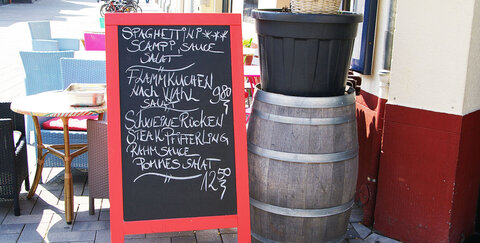 SPAGHETTI IN P***
SCAMPI, SAUCE
SALAT
FLAMMKUCHEN
NACH WAHL 9,80
SALAT
SCHWEINERÜCKEN
STEAK PFIFFERLING
RAHMSAUCE
POMMES SALAT
12,50